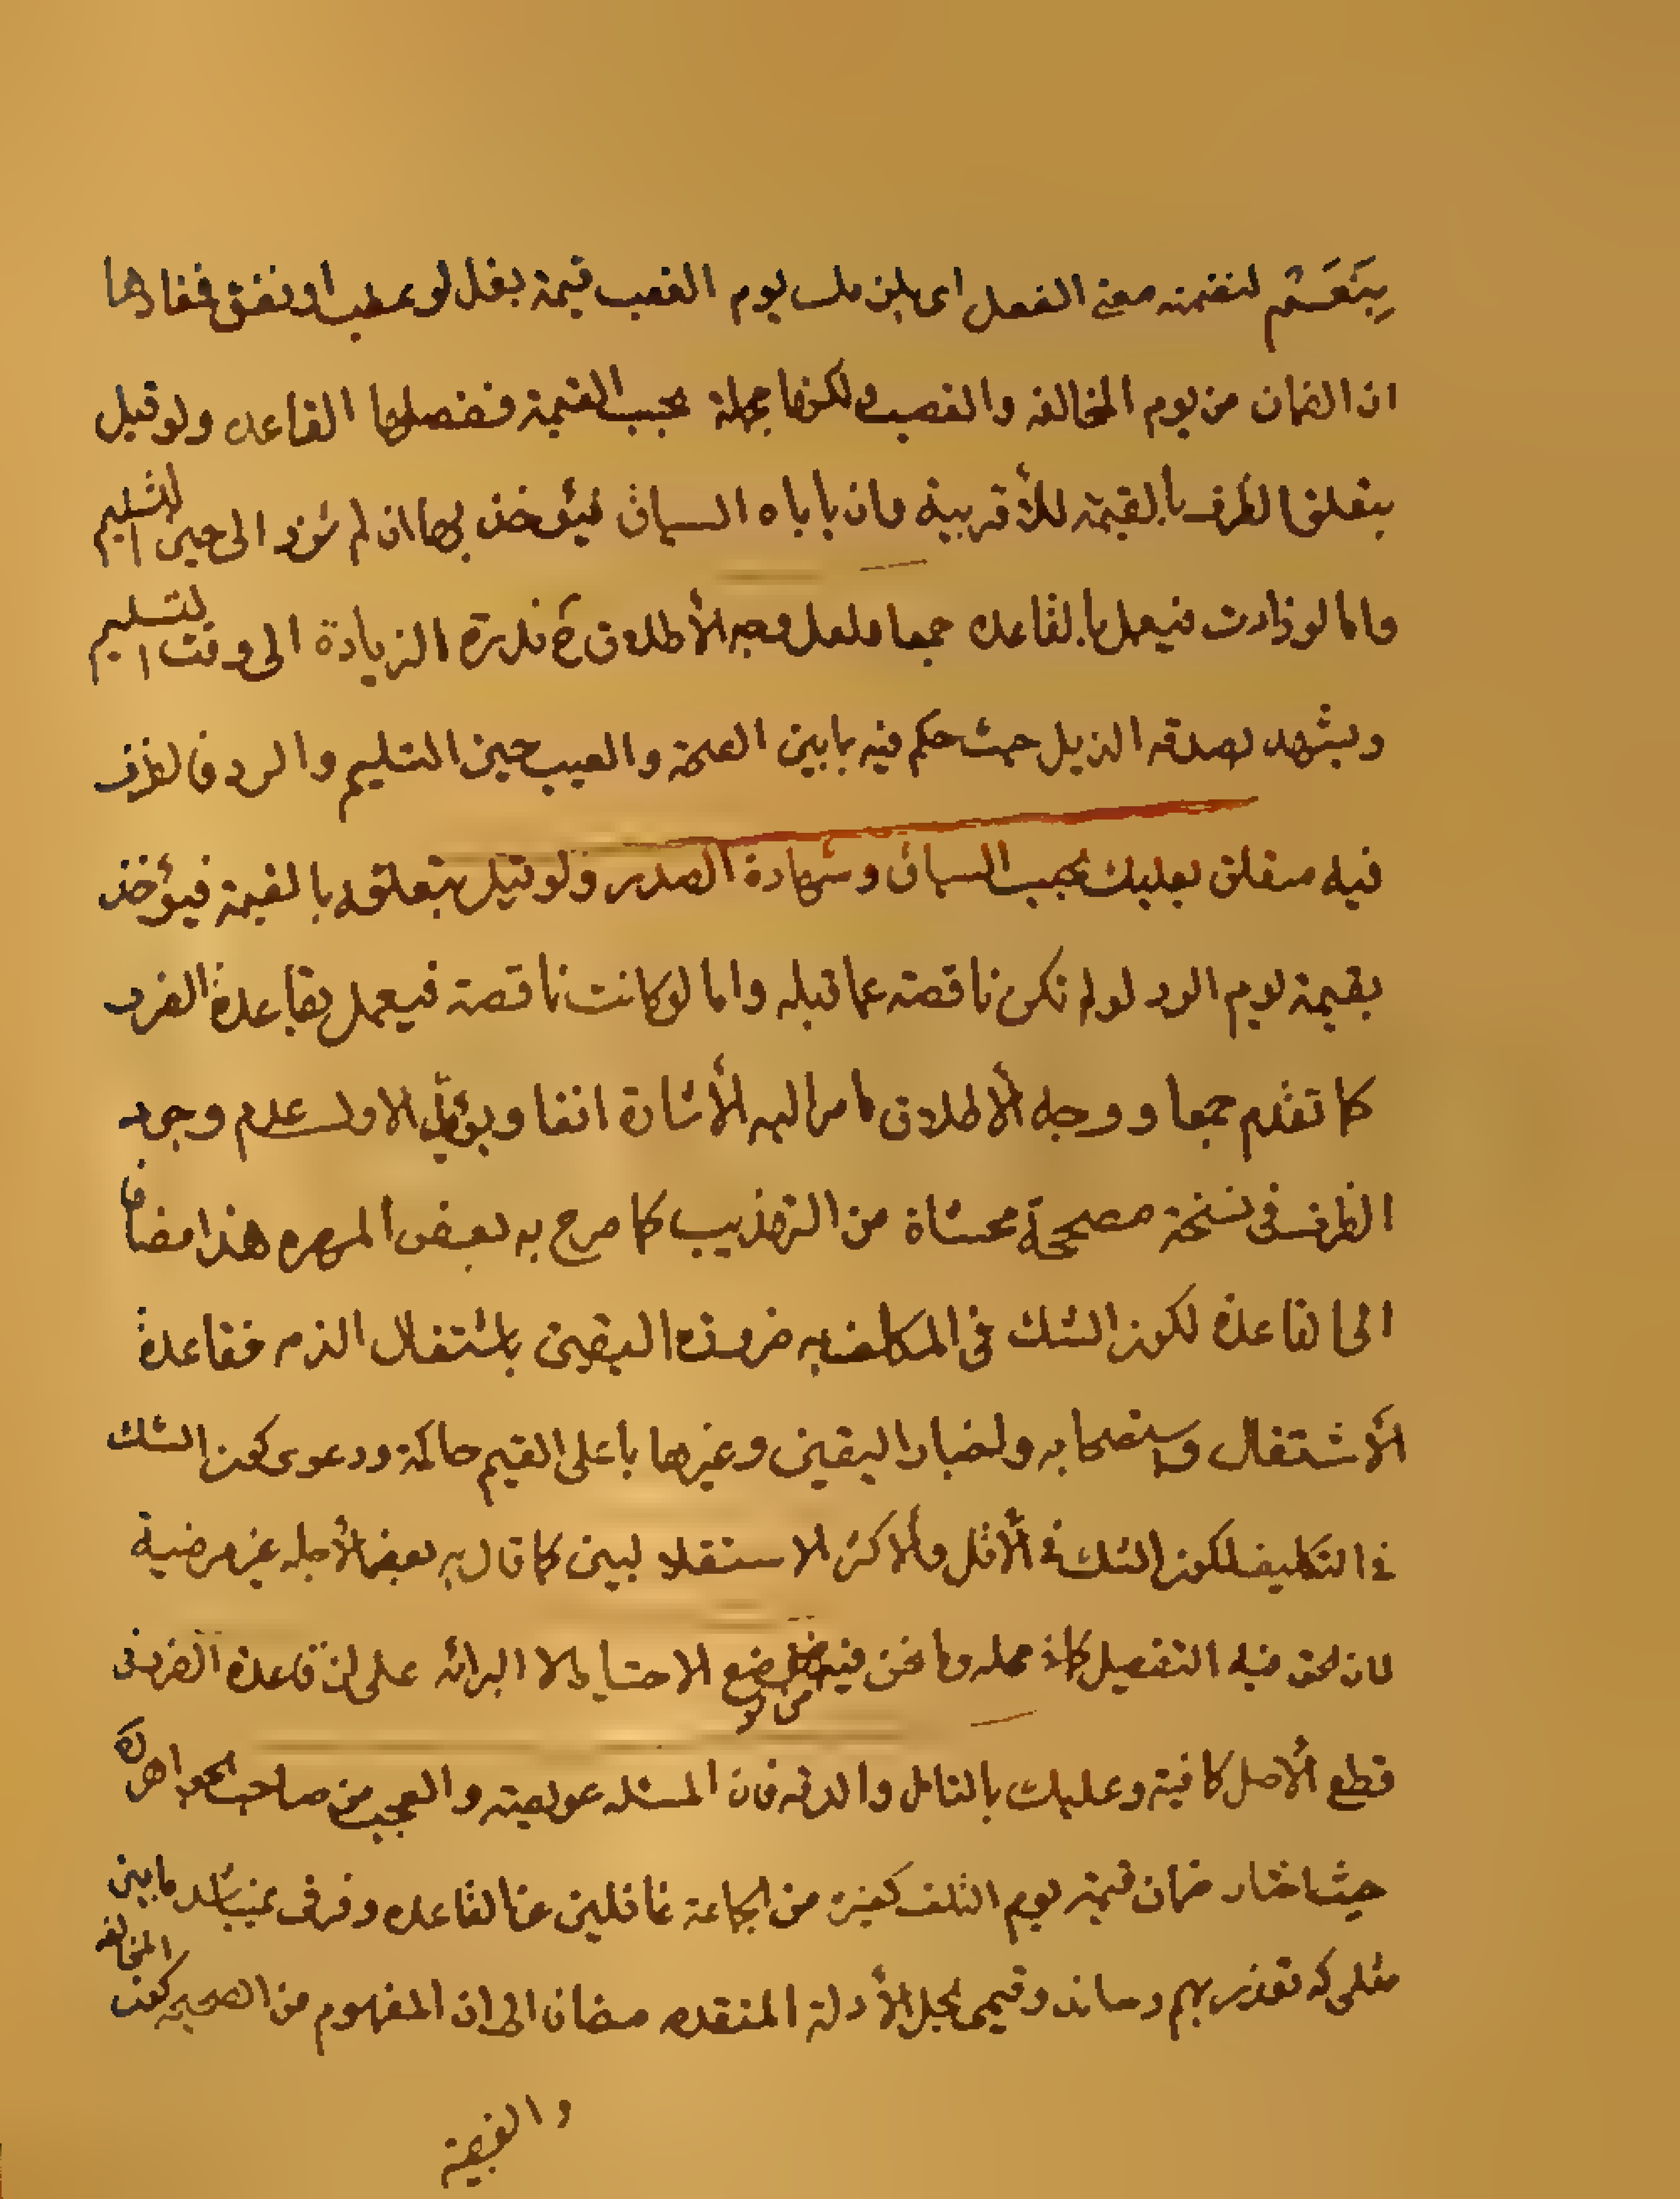 بِنَعَمْ لتضمنه معنى الفعل اى يلزمك يوم الغصب قيمة بغل لو عطب او نفق فمفادها
ان الضمان من يوم المخالفه والغصب ولكنها مجملة بحسب القيمة ففصلها القاعده ولو قيل
بتعلق الظرف بالقيمة للأقربية وان ياباه السياق فيؤخذ بها ان لم تزد الى حين التسليم
واما لو زادت فيعمل بالقاعده جمعا ولعل وجه الأطلاق ح ندرة الزيادة الى وقت التسليم
ويشهد لصدقه الذيل حيث حكم فيه بما بين الصحة والعيب حين التسليم والرد فالظرف
فيه متعلق بعليك بحسب السياق وشهادة الصدر ولو قيل بتعلقه بالقيمة فيؤخذ
بقيمة يوم الرد لو لم تكن ناقصة عما قبله واما لو كانت ناقصة فيعمل بقاعدة الضرر
كما تقدم جمعا ووجه الأطلاق ما مر اليه الأشارة انفا ويؤيد الاول عدم وجود
الظرف فى نسخة مصححة محشاة من التهذيب كما صرح به بعض المهره هذا مضافا
الى القاعدة لكون الشك فى المكلف به ضرورة اليقين باشتغال الذمه فقاعدة
الأشتغال واستصحابه ولاخبار اليقين وغيرها باعلى القيم حاكمة ودعوى كون الشك
فى التكليف لكون الشك فى الأقل والأكثر الاستقلاليين كما قال به بعض الأجله غير مرضية
لان الحق فيه التفصيل كما فى محله وما نحن فيه من موضع الاحتياط لا البرائه على ان قاعدة الضرر فى
قطع الأصل كافية وعليك بالتامل والدقه فان المسئله عويصته والعجب من صاحب الجواهر ره
حيث اختار ضمان قيمة يوم التلف كغيره من الجماعة غافلين عن القاعده وفرق نمیباشد مابین
مثلى كه تعذر بهم رساند وقیمی بجل الأدلة المتقدمه مضافا الى ان المفهوم من الصحيحه كون المخالفه
والغصبية